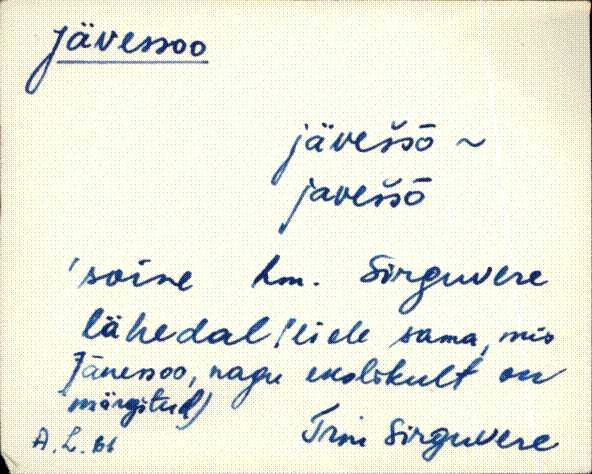 jävessoo
jävešsō ~
javešsō
'soine hm. Sirguvere
lähedal (ei ole sama, mis
Jänessoo, nagu ekslikult on
märgitud)
A. L. 61 Trm Sirguvere